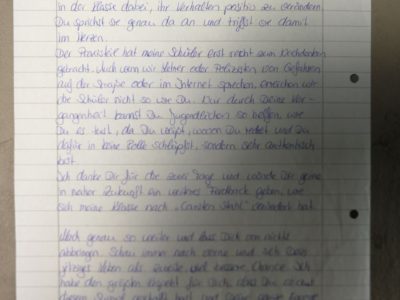 in der Klasse dabei, ihr Verhalten positiv zu verändern.
Du sprichst sie genau da an und triffst sie damit
im Herzen.
Der Praxisteil hat meine Schüler erst recht zum Nachdenken
gebracht. Auch wenn wir Lehrer oder Polizisten von Gefahren
auf der Straße oder im Internet sprechen, erreichen wir
die Schüler nicht so wie Du. Nur durch Deine Ver-
gangenheit kannst Du Jugendlichen so helfen, wie
Du es tust, da Du weißt, wovon Du redest und Du
dafür in keine Rolle schlüpfst, sondern sehr authentisch
bist.
Ich danke Dir für die zwei Tage und würde Dir gerne
in naher Zukunft ein weiteres Feedback geben, wie
sich meine Klasse nach "Carsten Stahl" verändert hat.
Mach genau so weiter und lass Dich von nichts
abbringen. Schau immer nach vorne und sieh Dein
jetziges Leben als zweite und bessere Chance. Ich
habe den größten Respekt für Dich, dass Du
diesen geschafft hast und